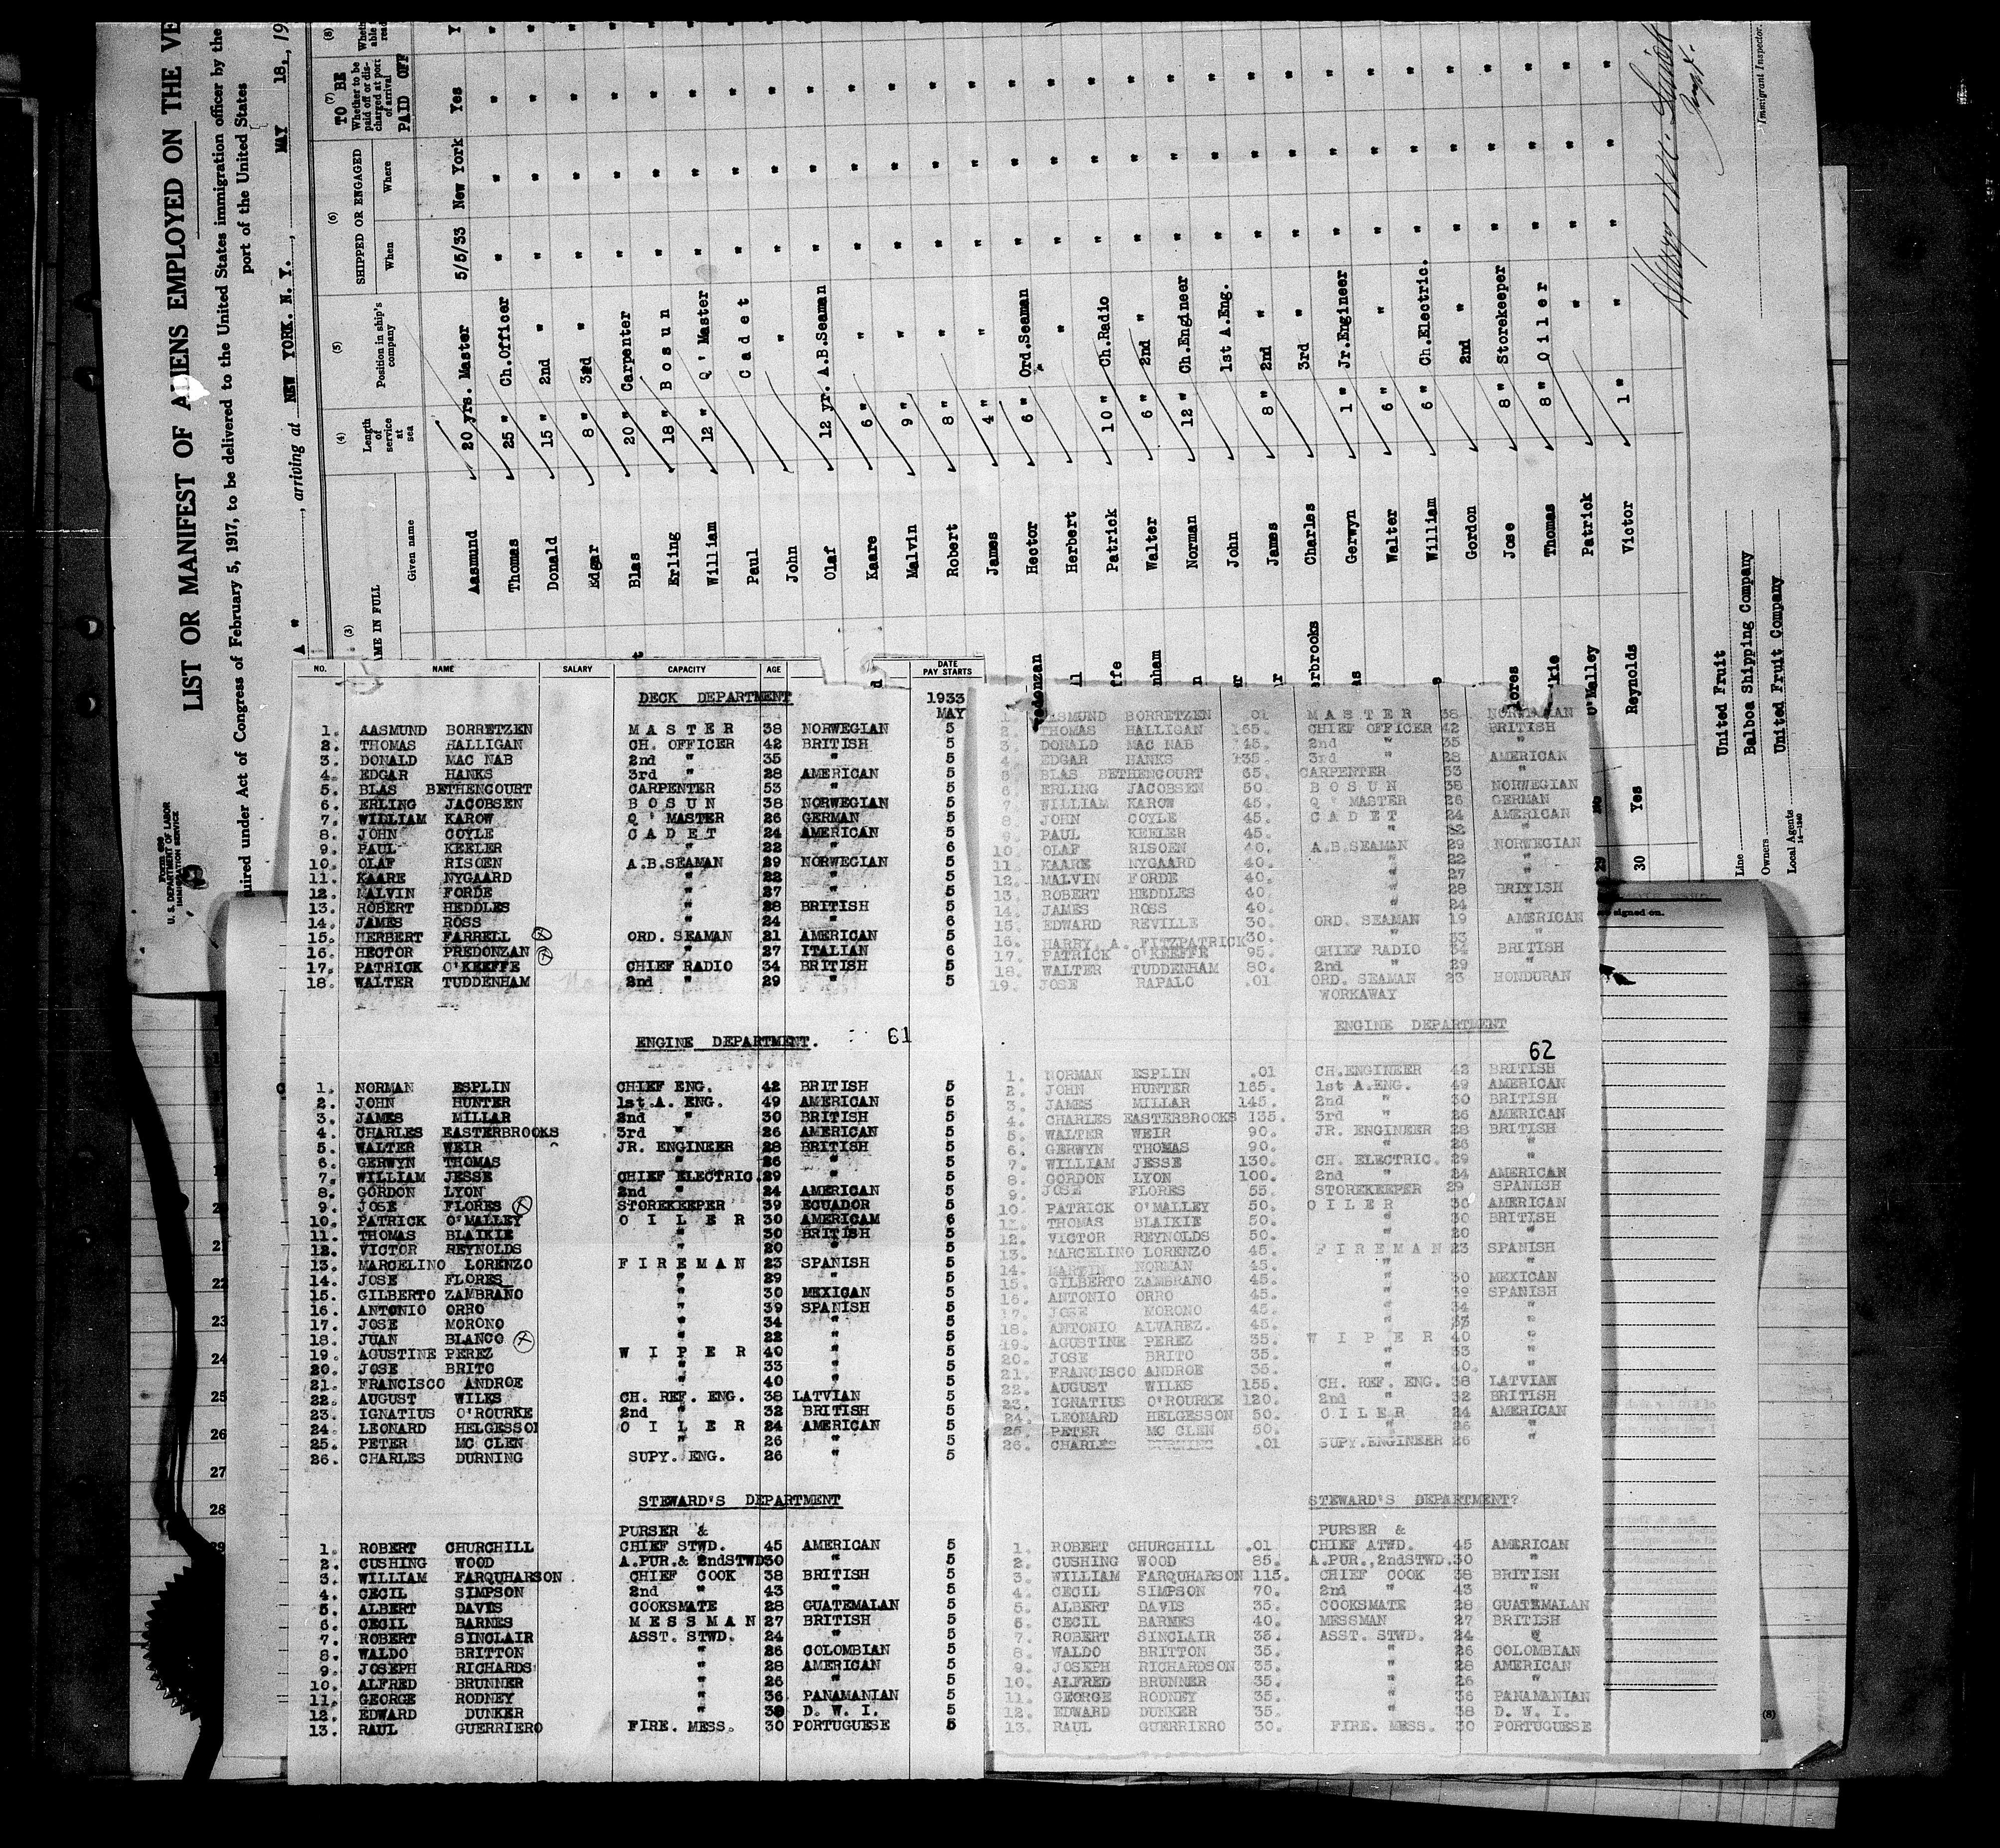 LIST OR MANIFEST OF ALIENS EMPLOYED ON THE VE
uired under Act of Congress of February 5, 1917, to be delivered to the United States immigration officer by the
port of the United States
arriving at NEW YORK. N. Y., MAY 18., 19
Form 689
U. S. DEPARTMENT OF LABOR
IMMIGRATION SERVICE
(3) AME IN FULL
Given name
(4) Length of service at sea
(5) Position in ship's company
(6) SHIPPED OR ENGAGED
When
Where
(7) TO BE
Whether to be paid off or discharged at port of arrival
PAID OFF
(8)
Aasmund 20 yrs. Master 5/5/33 New York Yes Y
Thomas 25 " Ch.Officer " " " "
Donald 15 " 2nd " " " " "
Edgar 8 " 3rd " " " " "
Blas 20 " Carpenter " " " "
Erling 18 " B o s u n " " " "
William 12 " Q ' Master " " " "
Paul C a d e t " " " "
John " " " " "
Olaf 12 yr. A.B.Seaman " " " "
Kaare 6 " " " " " "
Malvin 9 " " " " " "
Robert 8 " " " " " "
James 4 " " " " " "
Hector 6 " Ord.Seaman " " " "
Herbert " " " " "
Patrick 10 " Ch.Radio " " " "
Walter 6 " 2nd " " " " "
Norman 12 " Ch.Engineer " " " "
John 1st A.Eng. " " " "
James 8 " 2nd " " " " "
Charles 3rd " " " " "
Gerwyn 1 " Jr.Engineer " " " "
Walter 6 " " " " " "
William 6 " Ch.Electric. " " " "
Gordon 2nd " " " " "
Jose 8 " Storekeeper " " " "
Thomas 8 " O i l e r " " " "
29 O'Malley Patrick " " " " "
30 Yes Reynolds Victor 1 " " " " " "
Line United Fruit
Owners Balboa Shipping Company
Local Agents United Fruit Company
14—1240
Immigrant Inspector.
NO. NAME SALARY CAPACITY AGE DATE PAY STARTS
DECK DEPARTMENT 1933
MAY
1. AASMUND BORRETZEN M A S T E R 38 NORWEGIAN 5
2. THOMAS HALLIGAN CH. OFFICER 42 BRITISH 5
3. DONALD MAC NAB 2nd " 35 " 5
4. EDGAR HANKS 3rd " 28 AMERICAN 5
5. BLAS BETHENCOURT CARPENTER 53 " 5
6. ERLING JACOBSEN B O S U N 38 NORWEGIAN 5
7. WILLIAM KAROW Q ' MASTER 26 GERMAN 5
8. JOHN COYLE C A D E T 24 AMERICAN 5
9. PAUL KEELER " 22 " 6
10. OLAF RISOEN A.B.SEAMAN 29 NORWEGIAN 5
11. KAARE NYGAARD " 22 " 5
12. MALVIN FORDE " 27 " 5
13. ROBERT HEDDLES " 28 BRITISH 5
14. JAMES ROSS " 24 " 6
15. HERBERT FARRELL ORD. SEAMAN 21 AMERICAN 5
16. HECTOR PREDONZAN " 27 ITALIAN 6
17. PATRICK O'KEEFFE CHIEF RADIO 34 BRITISH 5
18. WALTER TUDDENHAM 2nd " 29 " 5
ENGINE DEPARTMENT. 61
1. NORMAN ESPLIN CHIEF ENG. 42 BRITISH 5
2. JOHN HUNTER 1st A. ENG. 49 AMERICAN 5
3. JAMES MILLAR 2nd " 30 BRITISH 5
4. CHARLES EASTERBROOKS 3rd " 26 AMERICAN 5
5. WALTER WEIR JR. ENGINEER 28 BRITISH 5
6. GERWYN THOMAS " 26 " 5
7. WILLIAM JESSE CHIEF ELECTRIC. 29 " 5
8. GORDON LYON 2nd " 24 AMERICAN 5
9. JOSE FLORES STOREKEEPER 39 ECUADOR 5
10. PATRICK O'MALLEY O I L E R 30 AMERICAM 6
11. THOMAS BLAIKIE " 30 BRITISH 5
12. VICTOR REYNOLDS " 20 " 5
13. MARCELINO LORENZO F I R E M A N 23 SPANISH 5
14. JOSE FLORES " 29 " 5
15. GILBERTO ZAMBRANO " 30 MEXICAN 5
16. ANTONIO ORRO " 39 SPANISH 5
17. JOSE MORONO " 34 " 5
18. JUAN BLANCO " 22 " 5
19. AGUSTINE PEREZ W I P E R 40 " 5
20. JOSE BRITO " 33 " 5
21. FRANCISCO ANDROE " 40 " 5
22. AUGUST WILKS CH. REF. ENG. 38 LATVIAN 5
23. IGNATIUS O'ROURKE 2nd " 32 BRITISH 5
24. LEONARD HELGESSON O I L E R 24 AMERICAN 5
25. PETER MC CLEN " 26 " 5
26. CHARLES DURNING SUPY. ENG. 26 " 5
STEWARD'S DEPARTMENT
PURSER &
1. ROBERT CHURCHILL CHIEF STWD. 45 AMERICAN 5
2. CUSHING WOOD A.PUR.& 2ndSTWD 30 " 5
3. WILLIAM FARQUHARSON CHIEF COOK 38 BRITISH 5
4. CECIL SIMPSON 2nd " 43 " 5
5. ALBERT DAVIS COOKSMATE 28 GUATEMALAN 5
6. CECIL BARNES M E S S M A N 27 BRITISH 5
7. ROBERT SINCLAIR ASST. STWD. 24 " 5
8. WALDO BRITTON " 26 COLOMBIAN 5
9. JOSEPH RICHARDS " 28 AMERICAN 5
10. ALFRED BRUNNER " 26 " 5
11. GEORGE RODNEY " 36 PANAMANIAN 5
12. EDWARD DUNKER " 38 D. W. I. 5
13. RAUL GUERRIERO FIRE. MESS. 30 PORTUGUESE 5
1. AASMUND BORRETZEN .01 M A S T E R 38 NORWEGIAN
2. THOMAS HALLIGAN 165. CHIEF OFFICER 42 BRITISH
3. DONALD MAC NAB 145. 2nd " 35 "
4. EDGAR HANKS 135. 3rd " 28 AMERICAN
5 BLAS BETHENCOURT 65. CARPENTER 53 "
6 ERLING JACOBSEN 50. B O S U N 38 NORWEGIAN
7 WILLIAM KAROW 45. Q ' MASTER 26 GERMAN
8. JOHN COYLE 45. C A D E T 24 AMERICAN
9. PAUL KEELER 45. " 22 "
10. OLAF RISOEN 40. A.B.SEAMAN 29 NORWEGIAN
11. KAARE NYGAARD 40. " 22 "
12. MALVIN FORDE 40. " 27 "
13. ROBERT HEDDLES 40. " 28 BRITISH
14. JAMES ROSS 40. " 24 "
15. EDWARD REVILLE 30. ORD. SEAMAN 19 AMERICAN
16. HARRY A. FITZPATRICK 30. " 33 "
17. PATRICK O'KEEFFE 95. CHIEF RADIO 34 BRITISH
18. WALTER TUDDENHAM 80. 2nd " 29 "
19. JOSE RAPALO .01 ORD. SEAMAN 23 HONDURAN
WORKAWAY
ENGINE DEPARTMENT
62
1. NORMAN ESPLIN .01 CH.ENGINEER 42 BRITISH
2. JOHN HUNTER 165. 1st A.ENG. 49 AMERICAN
3. JAMES MILLAR 145. 2nd " 30 BRITISH
4. CHARLES EASTERBROOKS 135. 3rd " 26 AMERICAN
5. WALTER WEIR 90. JR. ENGINEER 28 BRITISH
6. GERWYN THOMAS 90. " 26 "
7. WILLIAM JESSE 130. CH. ELECTRIC. 29 "
8. GORDON LYON 100. 2nd " 24 AMERICAN
9. JOSE FLORES 55. STOREKEEPER 29 SPANISH
10. PATRICK O'MALLEY 50. O I L E R 30 AMERICAN
11. THOMAS BLAIKIE 50. " 30 BRITISH
12. VICTOR REYNOLDS 50. " 20 "
13. MARCELINO LORENZO 45. F I R E M A N 23 SPANISH
14. MARTIN NORMAN 45. " "
15. GILBERTO ZAMBRANO 45. " 30 MEXICAN
16. ANTONIO ORRO 45. " 39 SPANISH
17. JOSE MORONO 45. " 34 "
18. ANTONIO ALVAREZ. 45. " "
19. AGUSTINE PEREZ 35. W I P E R 40 "
20. JOSE BRITO 35. " 33 "
21. FRANCISCO ANDROE 35. " 40. "
22. AUGUST WILKS 155. CH. REF. ENG. 38 LATVIAN
23. IGNATIUS O'ROURKE 120. 2nd " 32 BRITISH
24. LEONARD HELGESSON 50. O I L E R 24 AMERICAN
25. PETER MC CLEN 50. " 26 "
26. CHARLES DURNING .01 SUPY.ENGINEER 26 "
STEWARD'S DEPARTMENT?
PURSER &
1. ROBERT CHURCHILL .01 CHIEF ATWD. 45 AMERICAN
2. CUSHING WOOD 85. A.PUR.,2ndSTWD. 30 "
3. WILLIAM FARQUHARSON 115. CHIEF COOK 38 BRITISH
4. CECIL SIMPSON 70. 2nd " 43 "
5. ALBERT DAVIS 35. COOKSMATE 28 GUATEMALAN
6. CECIL BARNES 40. MESSMAN 27 BRITISH
7. ROBERT SINCLAIR 35. ASST. STWD. 24 Q
8. WALDO BRITTON 35. " 26 COLOMBIAN
9. JOSEPH RICHARDSON 35. " 28 AMERICAN
10. ALFRED BRUNNER 35. " 26 "
11. GEORGE RODNEY 35. " 36 PANAMANIAN
12. EDWARD DUNKER 35. " 38 D. W. I.
13. RAUL GUERRIERO 30. FIRE. MESS. 30 PORTUGUESE
signed on.
21
22
23
24
25
26
27
28
29
(8)